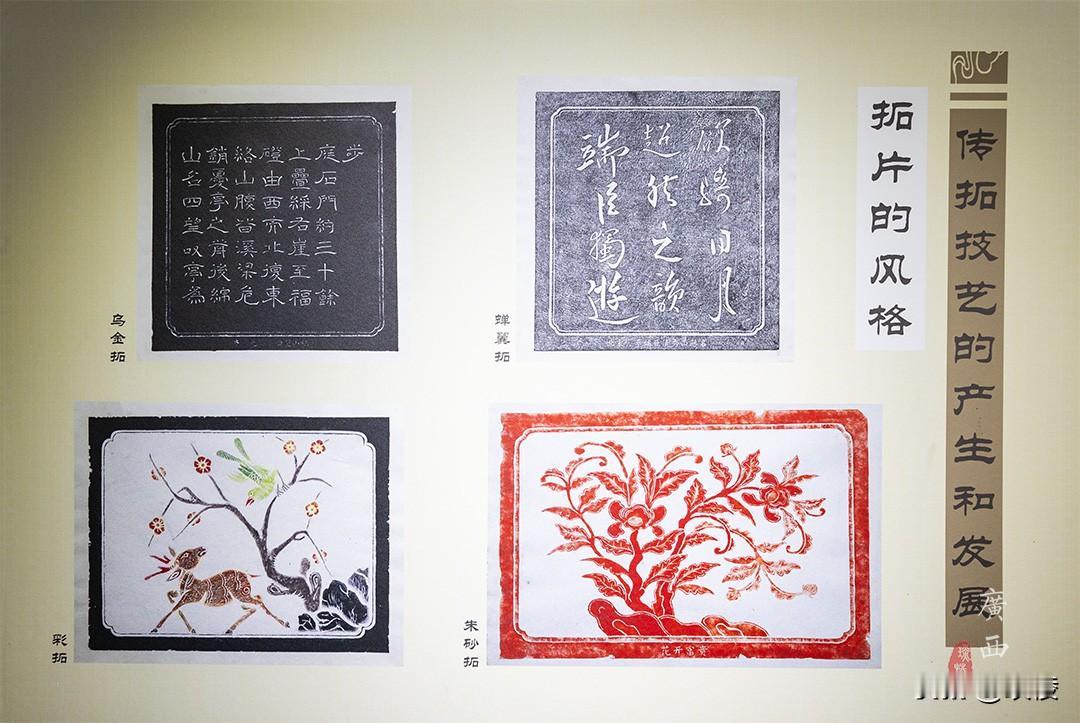 传拓技艺的产生和发展
拓片的风格
欲騎日月
超然之韻
端臣獨遊
蝉翼拓
山名四望以亭為
銷憂亭之前後綿
絡山腹皆溪梁危
磴由西而北復東
上疊綵右崖至福
庭石門約三十餘
步
乌金拓
花开富貴
朱砂拓
彩拓
廣西